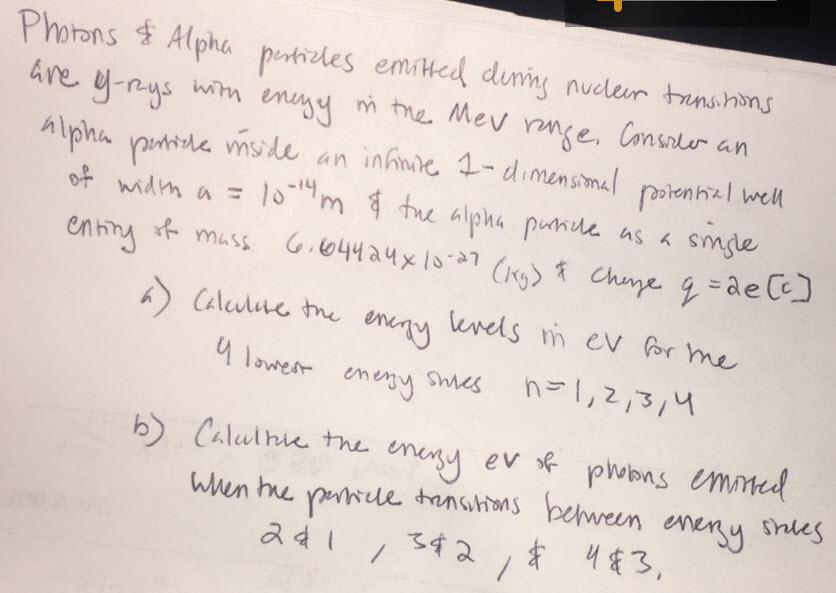 Photons & Alpha particles emitted during nuclear transitions
are y-rays with energy in the MeV range. Consider an
alpha particle inside an infinite 1-dimensional potential well
of width a = 10⁻¹⁴m & the alpha particle as a single
entity of mass 6.644424x10⁻²⁷ (kg) & charge q = 2e [C]
a) Calculate the energy levels in eV for the
4 lowest energy states n=1,2,3,4
b) Calculate the energy eV of photons emitted
when the particle transitions between energy states
2 & 1 , 3 & 2 , & 4 & 3.